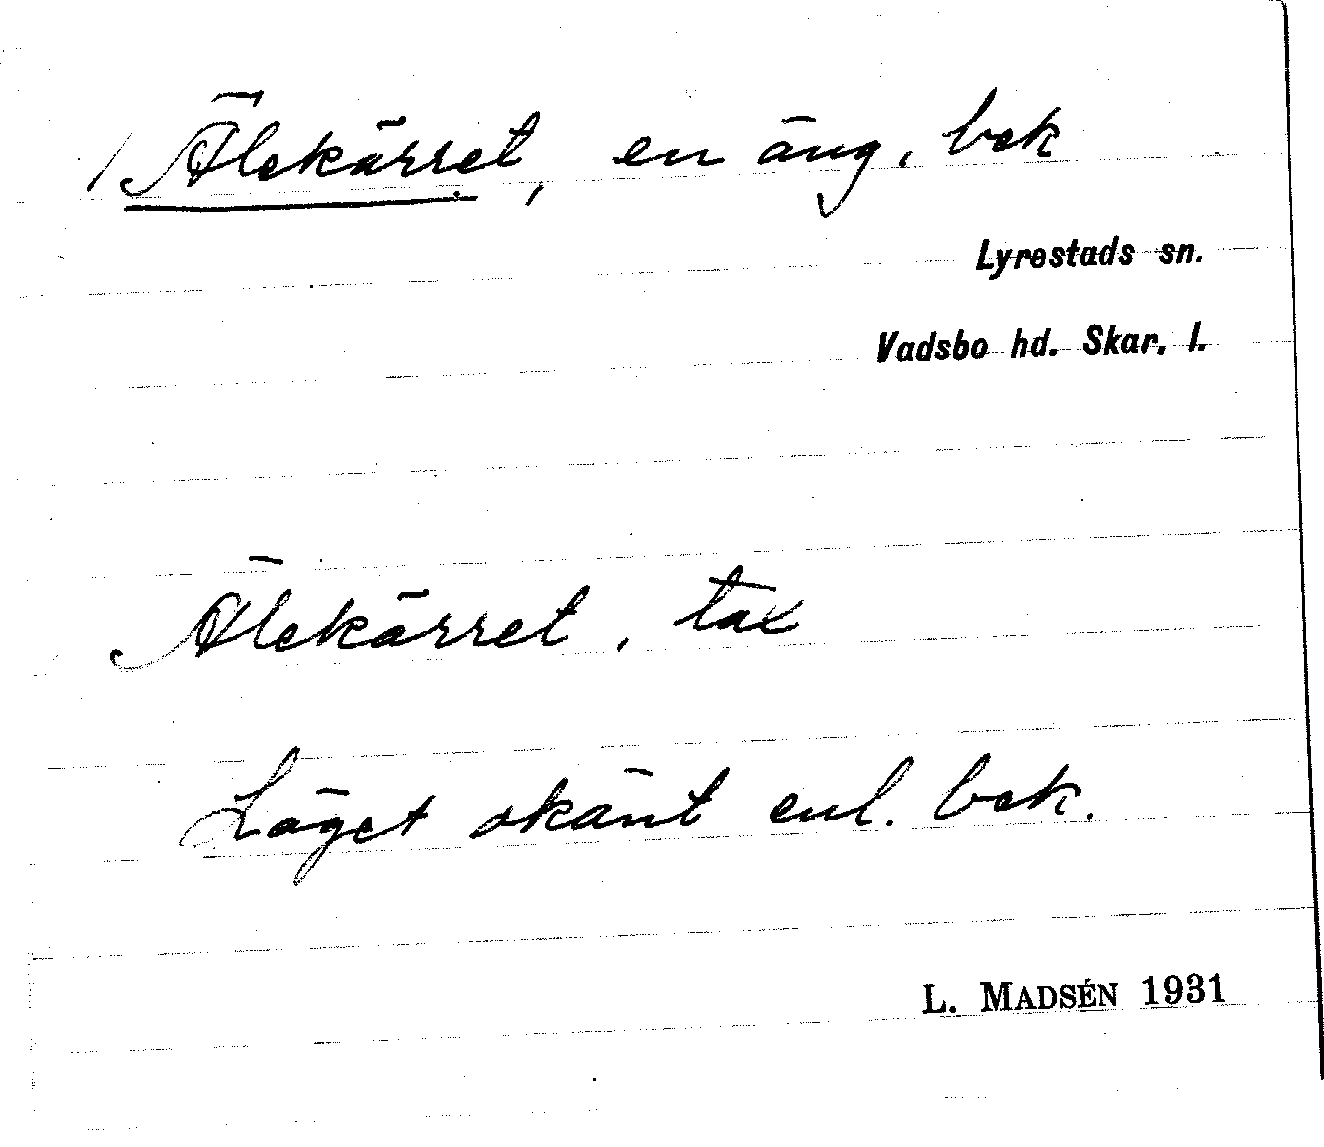 1 Älekärret, en äng, bek
Lyrestads sn.
Vadsbo hd. Skar. l.
Älekärret, tax
Läget okänt enl. bek.
L. MADSÉN 1931